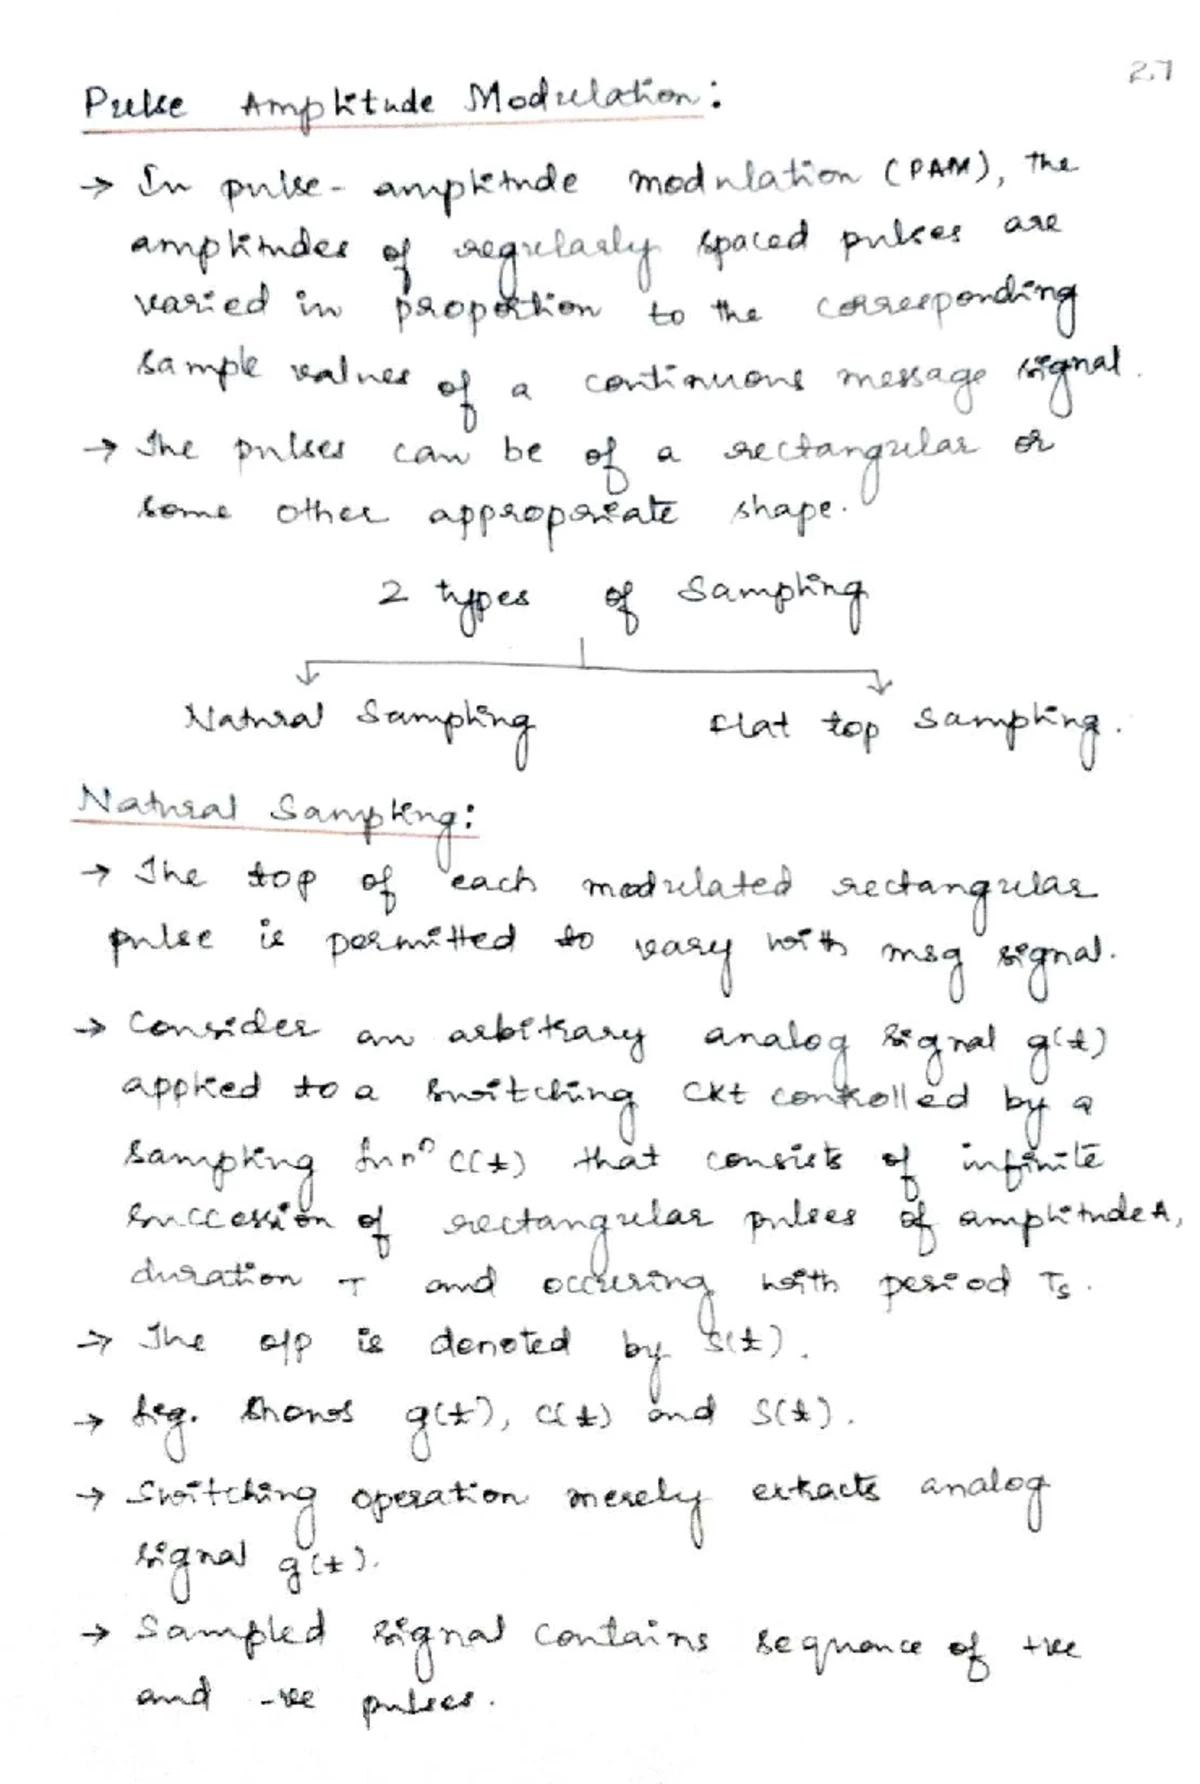 27
Pulse Amplitude Modulation:
→ In pulse-amplitude modulation (PAM), the
amplitudes of regularly spaced pulses are
varied in proportion to the corresponding
sample values of a continuous message signal.
→ The pulses can be of a rectangular or
some other appropriate shape.
2 types of Sampling
Natural Sampling Flat top Sampling.
Natural Sampling:
→ The top of each modulated rectangular
pulse is permitted to vary with msg signal.
→ Consider an arbitrary analog signal g(t)
applied to a switching ckt controlled by a
sampling funⁿ c(t) that consists of infinite
succession of rectangular pulses of amplitude A,
duration T and occuring with period Ts.
→ The o/p is denoted by s(t).
→ fig. shows g(t), c(t) and s(t).
→ Switching operation merely extracts analog
signal g(t).
→ Sampled signal contains sequence of +ve
and -ve pulses.